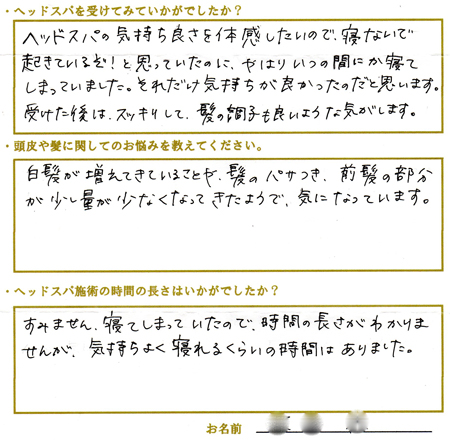 ・ヘッドスパを受けてみていかがでしたか？
ヘッドスパの気持ち良さを体感したいので、寝ないで
起きているぞ！と思っていたのに、やはりいつの間にか寝て
しまっていました。それだけ気持ちが良かったのだと思います。
受けた後は、スッキリして、髪の調子も良いような気がします。
・頭皮や髪に関してのお悩みを教えてください。
白髪が増えてきていることや、髪のパサつき、前髪の部分
が少し量が少なくなってきたようで、気になっています。
・ヘッドスパ施術の時間の長さはいかがでしたか？
すみません、寝てしまっていたので、時間の長さがわかりま
せんが、気持ちよく寝れるくらいの時間はありました。
お名前